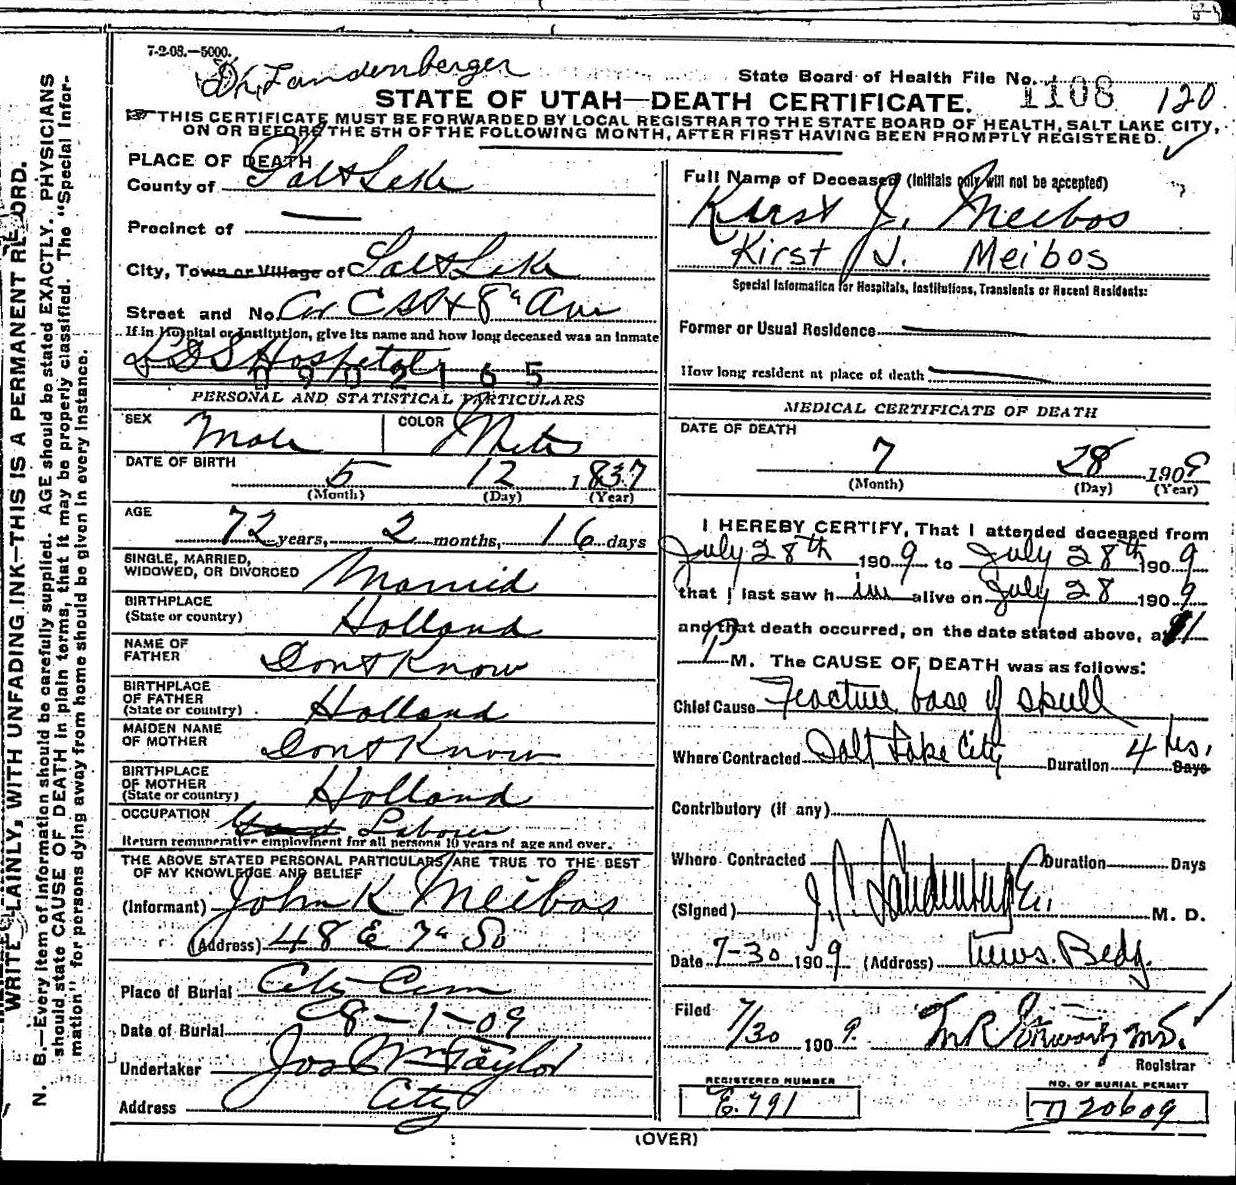 7-2-08.—5000.
Dr. Landenberger
State Board of Health File No. 1108 120
STATE OF UTAH—DEATH CERTIFICATE.
THIS CERTIFICATE MUST BE FORWARDED BY LOCAL REGISTRAR TO THE STATE BOARD OF HEALTH, SALT LAKE CITY,
ON OR BEFORE THE 5TH OF THE FOLLOWING MONTH, AFTER FIRST HAVING BEEN PROMPTLY REGISTERED.
PLACE OF DEATH
County of Salt Lake
Precinct of
City, Town or Village of Salt Lake
Street and No. Cor C St & 8th Ave
If in Hospital or Institution, give its name and how long deceased was an inmate
LDS Hospital
0902165
PERSONAL AND STATISTICAL PARTICULARS
SEX Male COLOR White
DATE OF BIRTH 5 12 1837
(Month) (Day) (Year)
AGE
72 years, 2 months, 16 days
SINGLE, MARRIED,
WIDOWED, OR DIVORCED Married
BIRTHPLACE
(State or country) Holland
NAME OF
FATHER Dont Know
BIRTHPLACE
OF FATHER
(State or country) Holland
MAIDEN NAME
OF MOTHER Dont Know
BIRTHPLACE
OF MOTHER
(State or country) Holland
OCCUPATION Laborer
Return remunerative employment for all persons 10 years of age and over.
THE ABOVE STATED PERSONAL PARTICULARS ARE TRUE TO THE BEST
OF MY KNOWLEDGE AND BELIEF
(Informant) John K Meibos
(Address) 48 E 7th So
Place of Burial City Cem
Date of Burial 8-1-09
Undertaker Jos Wm Taylor
Address City
Full Name of Deceased (Initials only will not be accepted)
Kirst J. Meibos
Kirst J. Meibos
Special Information for Hospitals, Institutions, Transients or Recent Residents:
Former or Usual Residence
How long resident at place of death
MEDICAL CERTIFICATE OF DEATH
DATE OF DEATH
7 28 1909
(Month) (Day) (Year)
I HEREBY CERTIFY, That I attended deceased from
July 28th 1909 to July 28th 1909
that I last saw him alive on July 28 1909
and that death occurred, on the date stated above, at 11
P M. The CAUSE OF DEATH was as follows:
Chief Cause Fracture base of skull
Where Contracted Salt Lake City Duration 4 hrs. Days
Contributory (if any)
Where Contracted Duration Days
(Signed) J. C. Landenberger M. D.
Date 7-30 1909 (Address) News Bldg.
Filed 7/30 1909.
Registrar
REGISTERED NUMBER
E.791
NO. OF BURIAL PERMIT
D 20609
(OVER)
WRITE PLAINLY, WITH UNFADING INK—THIS IS A PERMANENT RECORD.
N. B.—Every item of information should be carefully supplied. AGE should be stated EXACTLY. PHYSICIANS
should state CAUSE OF DEATH in plain terms, that it may be properly classified. The "Special Infor-
mation" for persons dying away from home should be given in every instance.